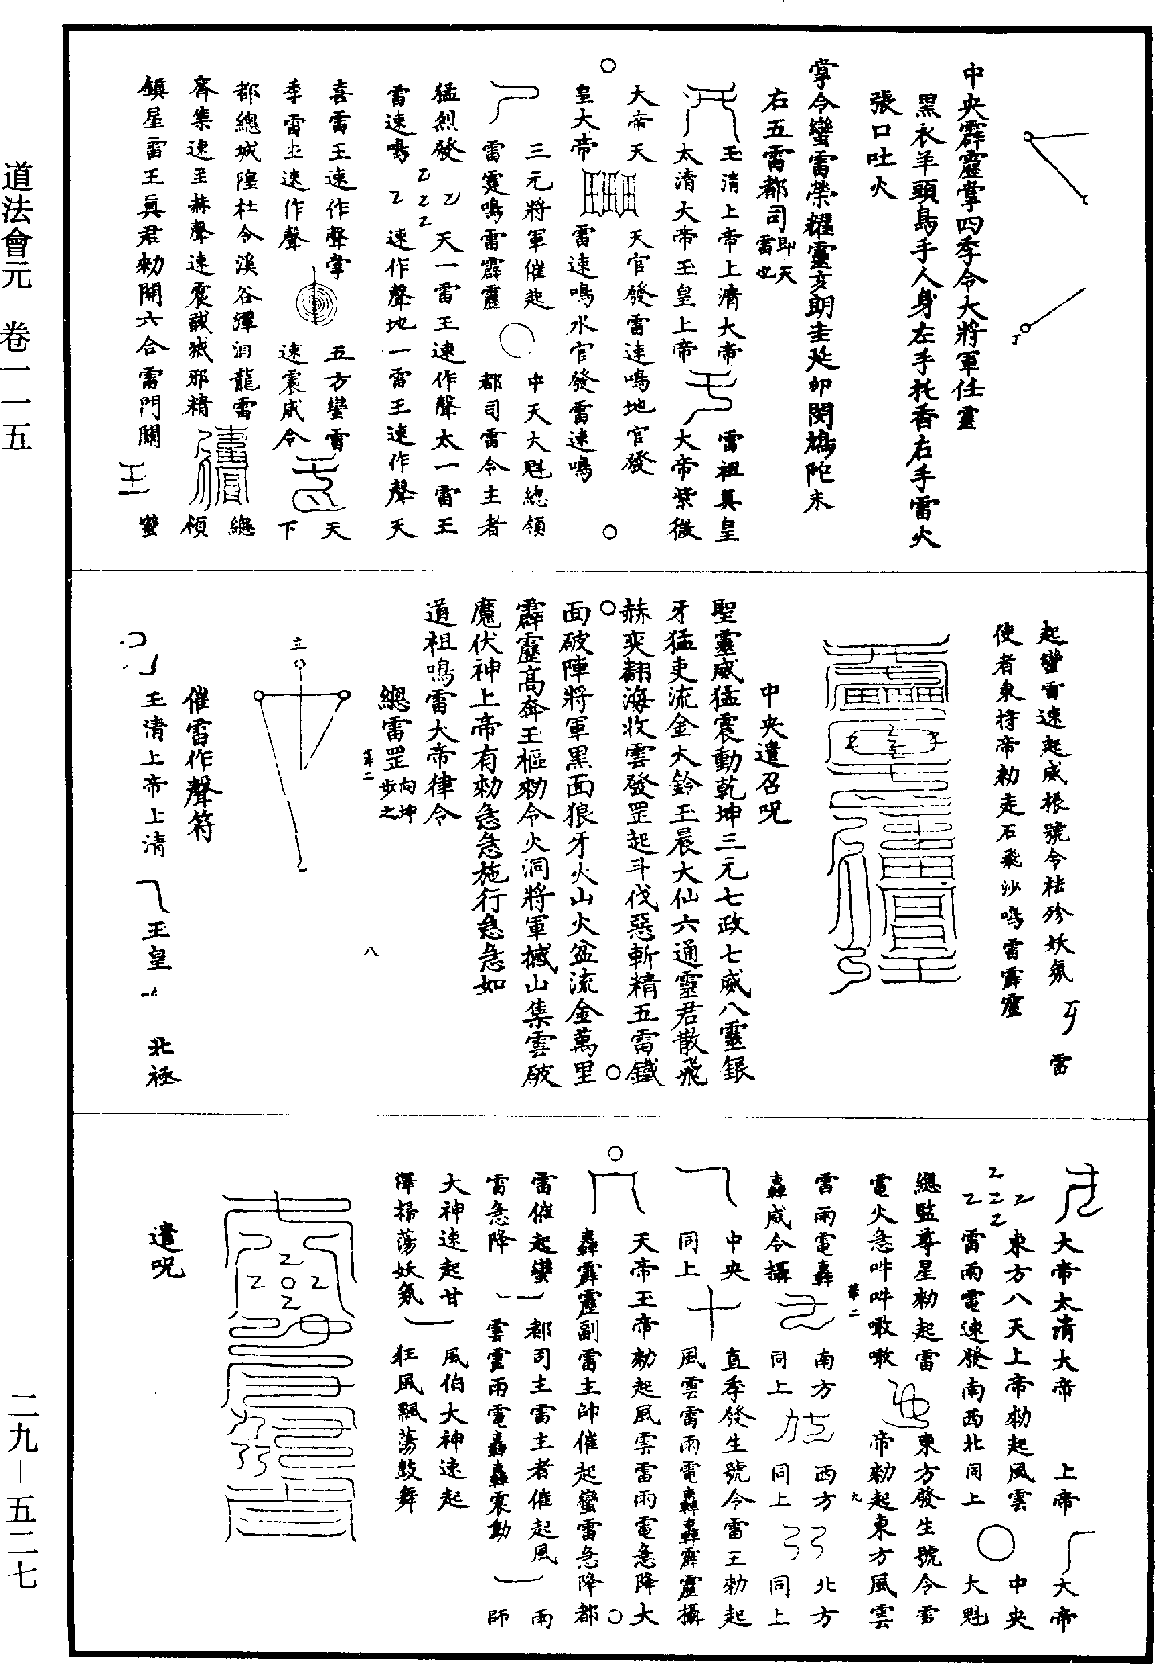 道法會元 卷一一五
二九－五二七
中央霹靂掌四季令大將軍任靈
黑衣羊頭鳥手人身左手托香右手雷火
張口吐火
掌令蠻雷榮耀靈亥明圭延却閔鳩陀末
右五雷都司即天雷也
玉清上帝上清大帝 雷祖真皇
太清大帝玉皇上帝 大帝紫微
大帝天 天官發雷速鳴地官發
皇大帝 雷速鳴水官發雷速鳴
三元將軍催起 中天大魁總領
雷霆鳴雷霹靂 都司雷令主者
猛烈發 乙 乙乙乙 天一雷王速作聲太一雷王
雷速鳴 乙 速作聲地一雷王速作聲天
喜雷王速作聲掌 五方蠻雷 天
季雷立速作聲 速震威令 下
都總城隍社令溪谷潭洞龍雷 總
齊集速至赫聲速震誡滅邪精 領
鎮星雷王真君勑開六合雷門關 蠻
起蠻雷速起威振號令祛殄妖氛 雷
使者東持帝勑走石飛沙鳴雷霹靂
中央遣召呪
聖靈威猛震動乾坤三元七政七威八靈銀
牙猛吏流金大鈴玉晨大仙六通靈君散飛
赫奕翻海收雲發罡起斗伐惡斬精五雷鐵
面破陣將軍黑面狼牙火山火盆流金萬里
霹靂高奔玉樞勑令火洞將軍撼山集雲破
魔伏神上帝有勑急急施行急急如
道祖鳴雷大帝律令
總雷罡向坤步之
第二
八
三
催雷作聲符
玉清上帝上清 玉皇 北極
大帝太清大帝 上帝 大帝
乙 東方八天上帝勑起風雲 中央
乙乙乙乙 雷雨電速發南西北同上 大魁
總監尊星勑起雷 東方發生號令雷
電火急吽吽噉噉 帝勑起東方風雲
第二
九
雷雨電轟 南方 西方 北方
轟威令攝 同上 同上 同上
中央 直季發生號令雷王勑起
同上 風雲雷雨電轟轟霹靂攝
天帝王帝勑起風雲雷雨電急降大
轟霹靂副雷主帥催起蠻雷急降都
雷催起蠻 都司主雷主者催起風 雨
雷急降 雲靈雨電轟轟震動 師
大神速起甘 風伯大神速起
澤掃蕩妖氛 狂風飄蕩鼓舞
遣呪